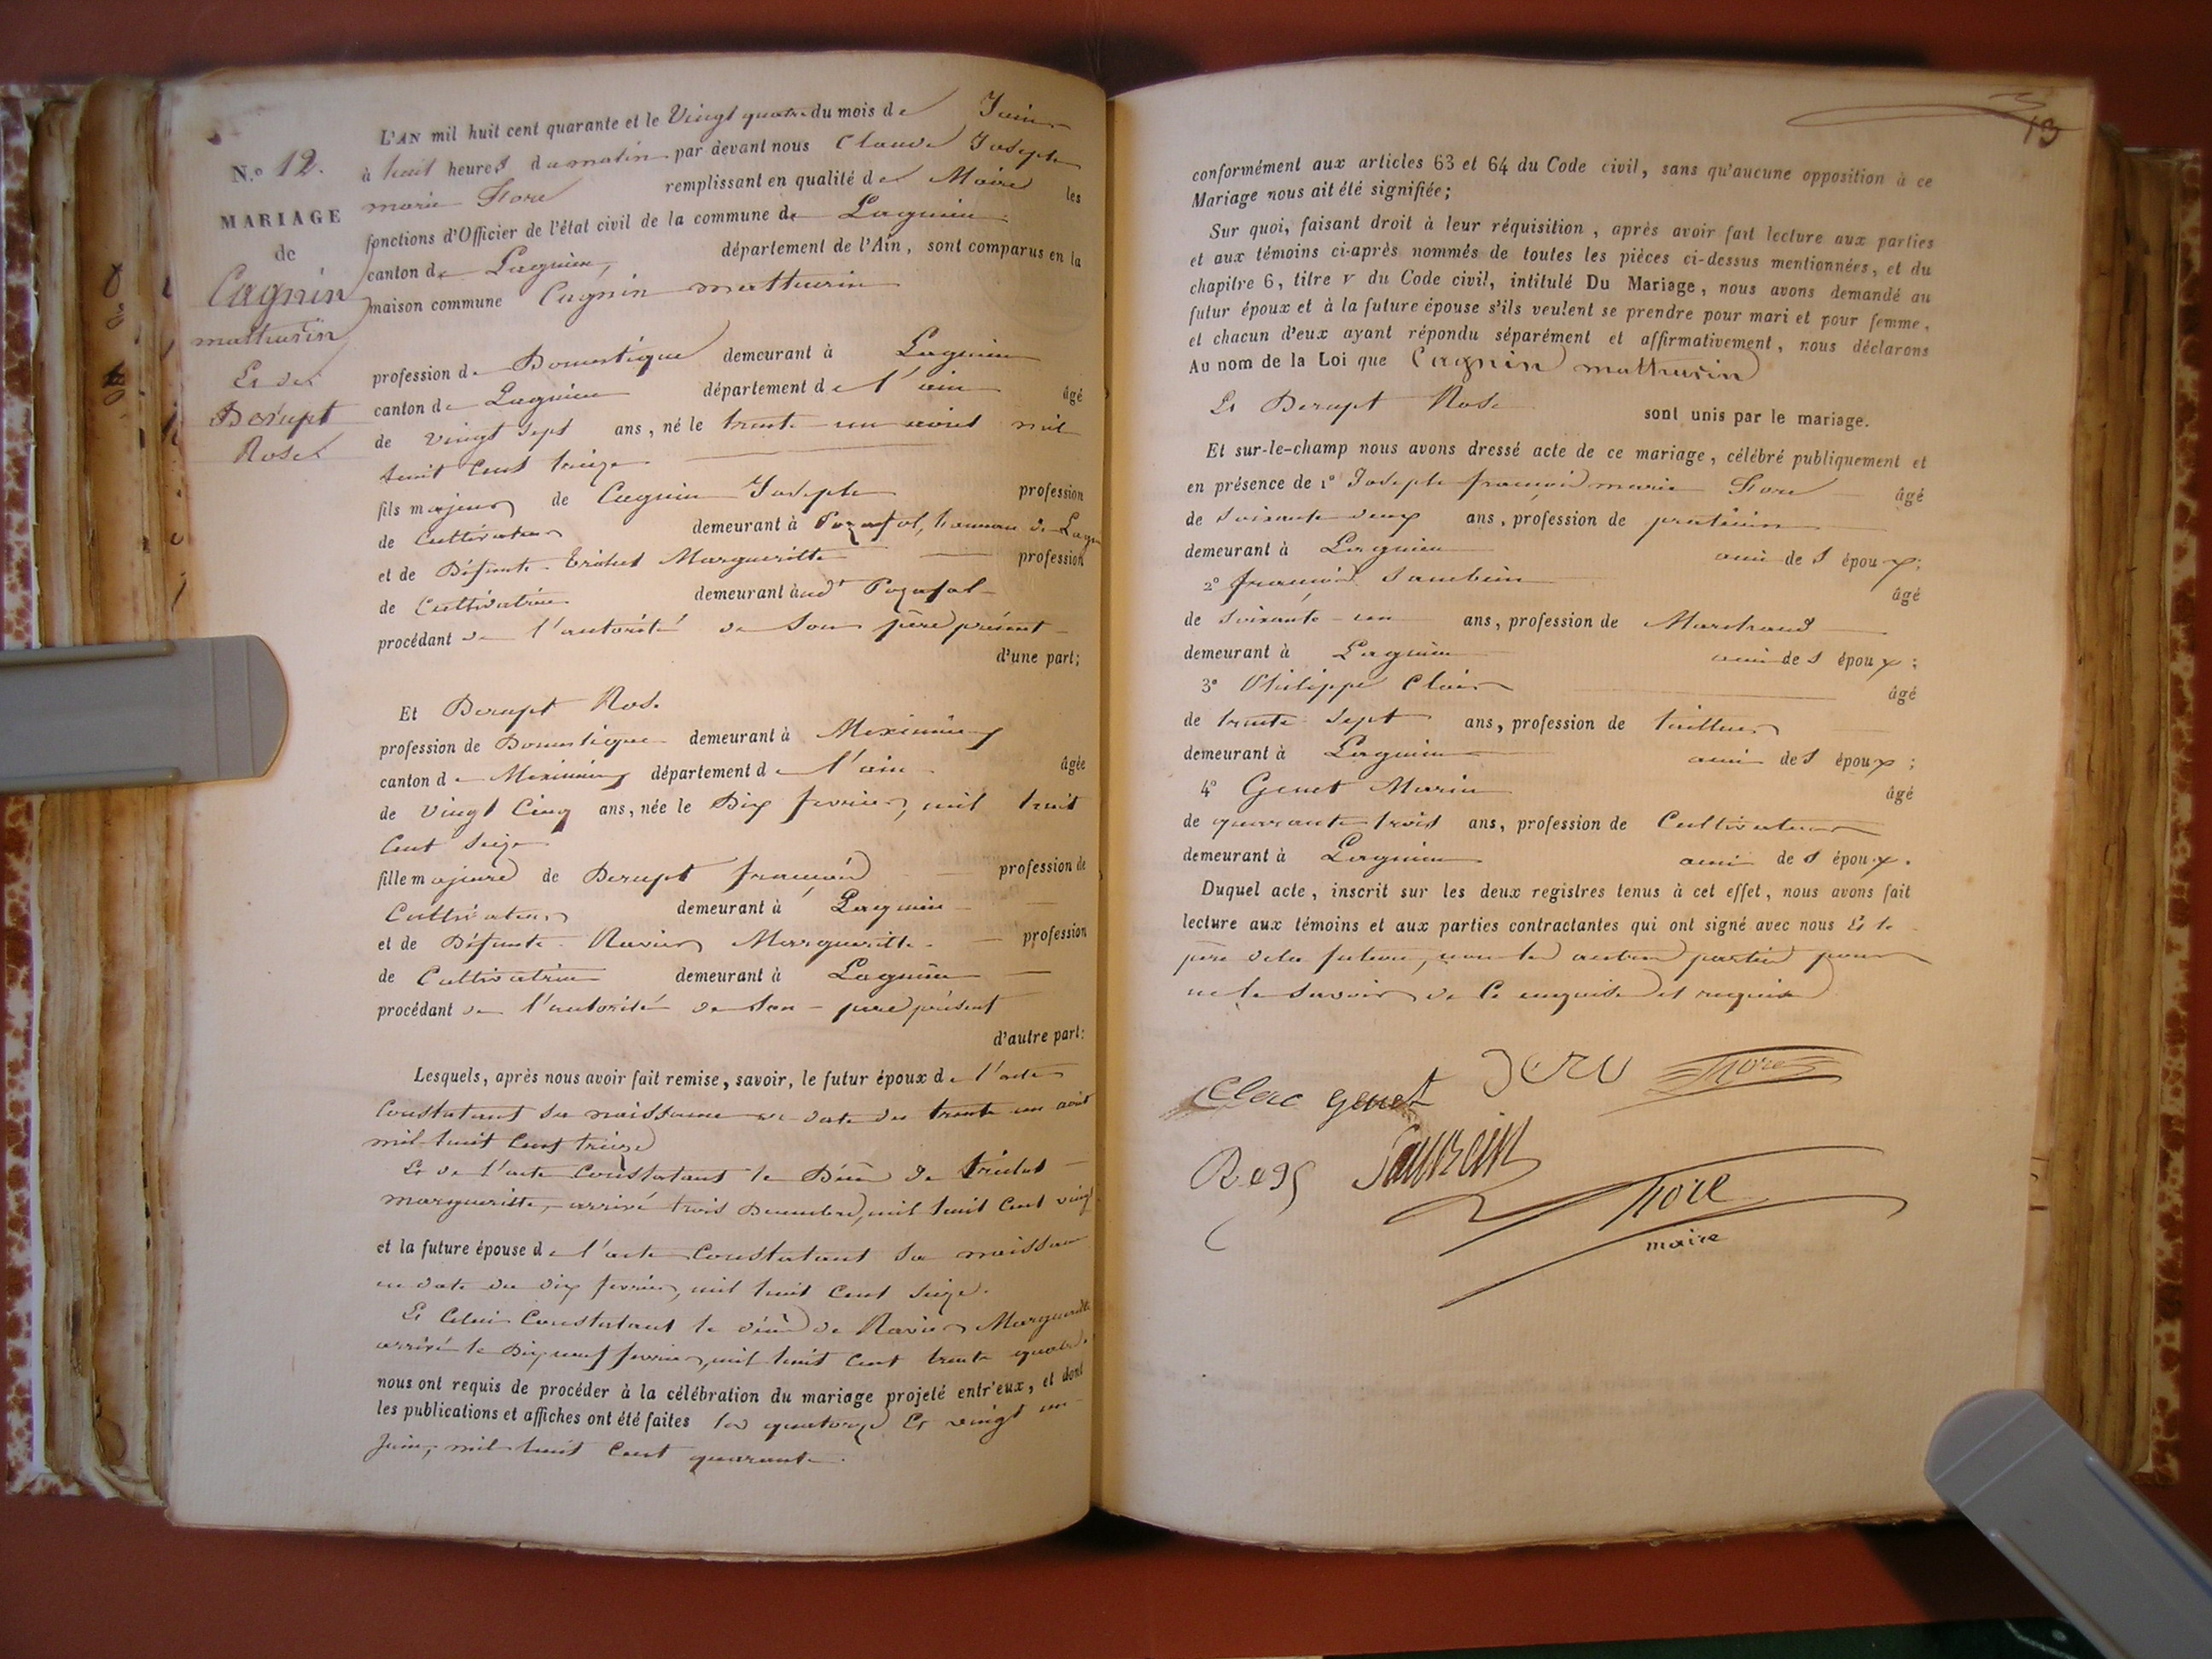 N.º 12.
MARIAGE
de
Cagnin
mathurin
Et de
Derupt
Rose
L'AN mil huit cent quarante et le Vingt quatre du mois de Juin
à huit heures du matin par devant nous Claude Joseph
marie Fore remplissant en qualité de Maire les
fonctions d'Officier de l'état civil de la commune de Lagnieu
canton de Lagnieu, département de l'Ain, sont comparus en la
maison commune Cagnin mathurin
profession de Domestique demeurant à Lagnieu
canton de Lagnieu département de l'ain âgé
de vingt sept ans, né le trente un mil
huit Cent treize
fils majeur de Cagnin Joseph profession
de Cultivateur demeurant à Pozafol, hameau de
et de Défunte Margueritte profession
de Cultivatrice demeurant aud.t Pozafol
procédant de l'autorité de Son père présent
d'une part;
Et Derupt Rose
profession de Domestique demeurant à Meximieux
canton de Meximieux département de l'ain âgée
de Vingt Cinq ans, née le Dix fevrier, mil huit
Cent Seize
fille majeure de Derupt françois profession de
Cultivateur demeurant à Lagnieu
et de Défunte Ravier Margueritte profession
de Cultivatrice demeurant à Lagnieu
procédant de l'autorité de Son père présent
d'autre part:
Lesquels, après nous avoir fait remise, savoir, le futur époux de l'acte
Constatant Sa naissance en date du trente un août
mil huit Cent treize
Et de l'acte Constatant le Décès de
margueritte, arrivé trois Decembre, mil huit Cent vingt
et la future épouse de l'acte Constatant Sa naissance
en date du dix fevrier, mil huit Cent Seize.
Et Celui Constatant le décès de Ravier Margueritte
arrivé le Dix neuf fevrier, mil huit Cent trente quatre.
nous ont requis de procéder à la célébration du mariage projeté entr'eux, et dont
les publications et affiches ont été faites les quatorze Et vingt un
Juin, mil huit Cent quarante.
13
conformément aux articles 63 et 64 du Code civil, sans qu'aucune opposition à ce
Mariage nous ait été signifiée;
Sur quoi, faisant droit à leur réquisition, après avoir fait lecture aux parties
et aux témoins ci-après nommés de toutes les pièces ci-dessus mentionnées, et du
chapitre 6, titre V du Code civil, intitulé Du Mariage, nous avons demandé au
futur époux et à la future épouse s'ils veulent se prendre pour mari et pour femme,
et chacun d'eux ayant répondu séparément et affirmativement, nous déclarons
Au nom de la Loi que Cagnin mathurin
Et Derupt Rose sont unis par le mariage.
Et sur-le-champ nous avons dressé acte de ce mariage, célébré publiquement et
en présence de 1º Joseph françois marie Fore âgé
de Soixante deux ans, profession de praticien
demeurant à Lagnieu ami de S époux;
2º françois Saubin âgé
de Soixante un ans, profession de Marchand
demeurant à Lagnieu ami de S époux;
3º Philippe Clair âgé
de trente Sept ans, profession de tailleur
demeurant à Lagnieu ami de S époux;
4º Genet Marin âgé
de quarante trois ans, profession de Cultivateur
demeurant à Lagnieu ami de S époux.
Duquel acte, inscrit sur les deux registres tenus à cet effet, nous avons fait
lecture aux témoins et aux parties contractantes qui ont signé avec nous Et le
père de la future, non les autres parties pour
ne le Savoir de Ce enquises et requises
Clere genet Fore
Fore
maire